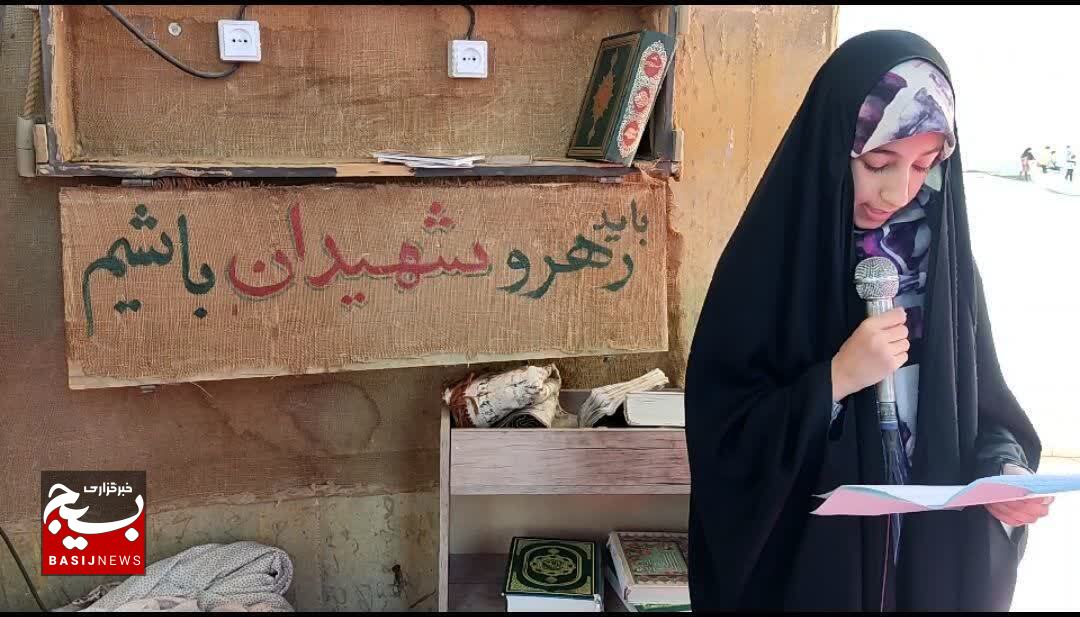 باید
رهرو شهیدان باشیم
خبرگزاری
بسیج
BASIJNEWS